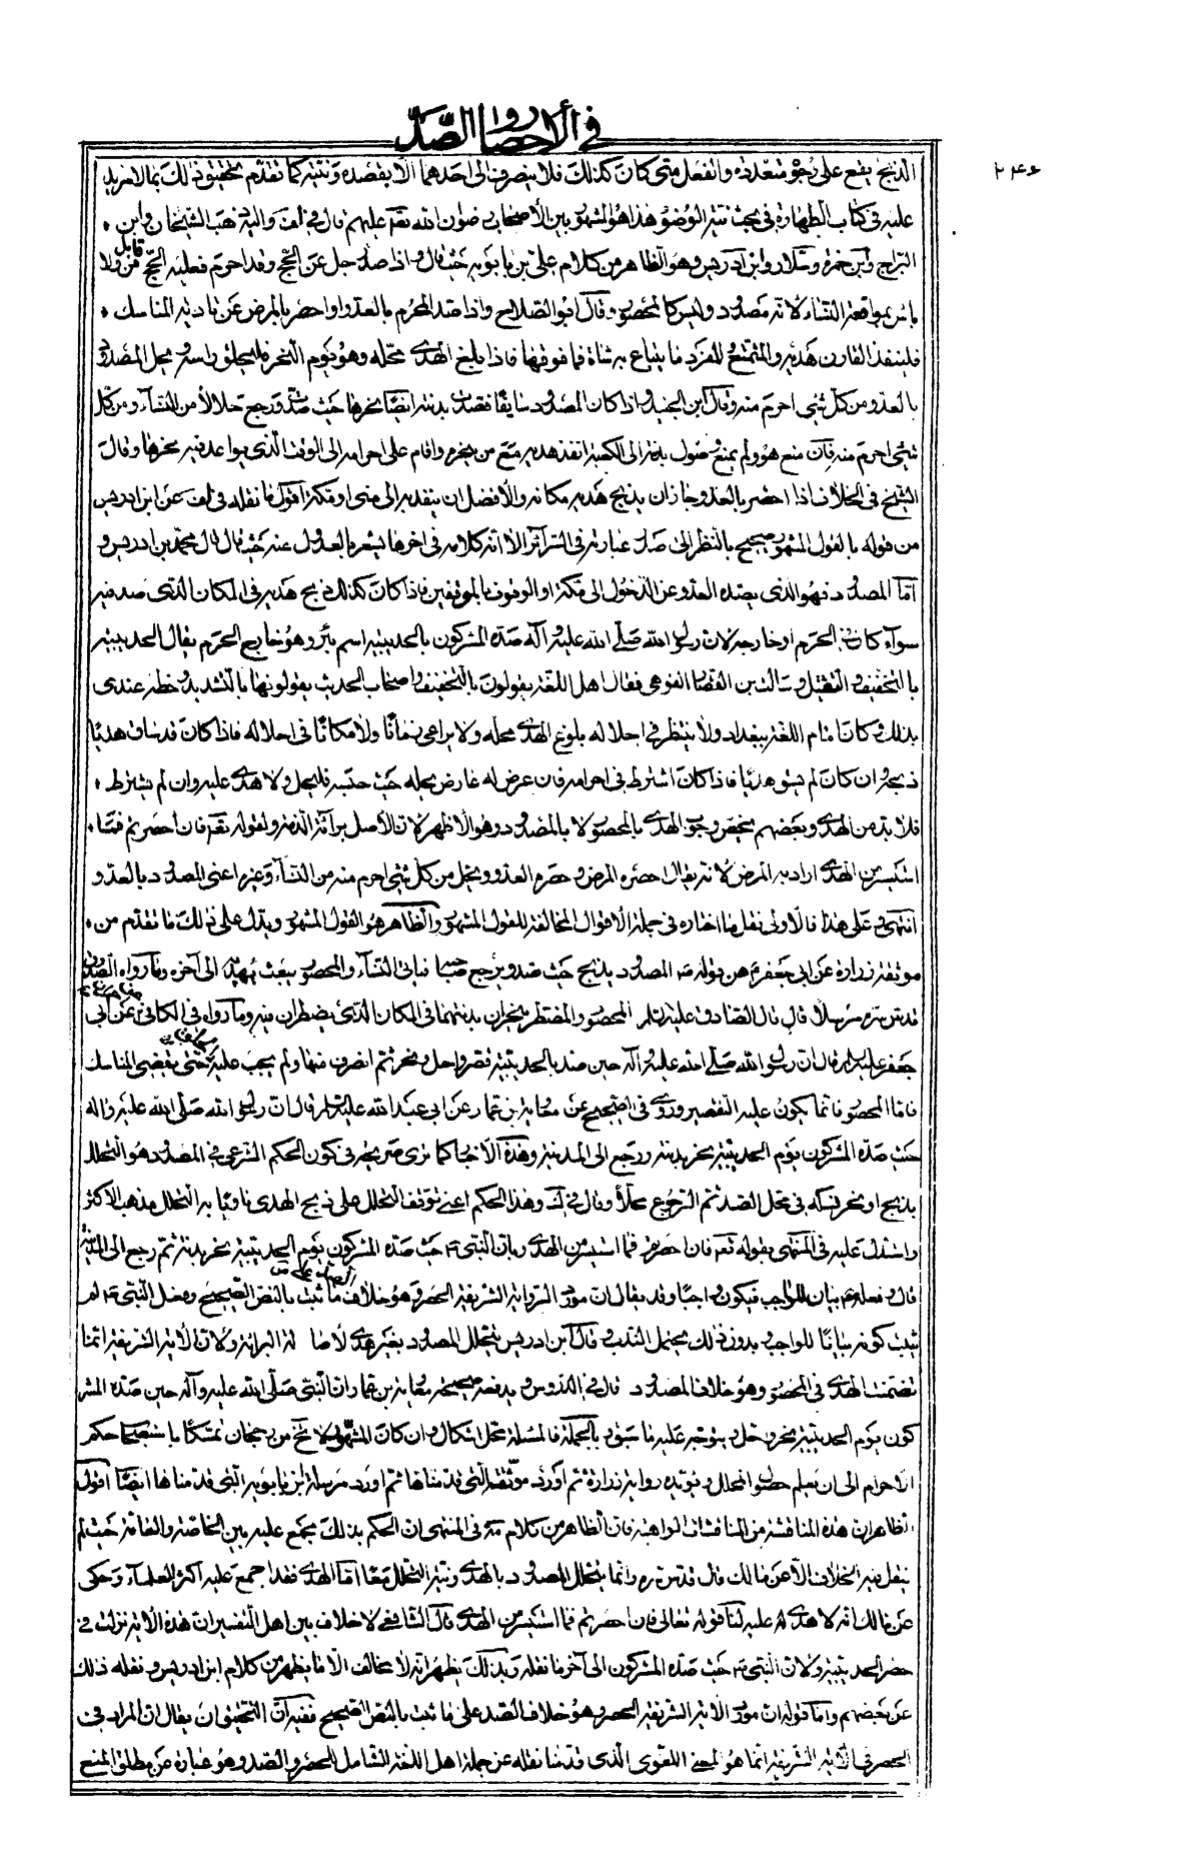 في الاحصار والصد
٢٤٦
الذبح يقع على وجوه متعددة والفعل متى كان كذلك فلا ينصرف الى احدهما الا بقصده ونيته كما تقدم تحقيق ذلك بما لا مزيد
عليه في كتاب الطهارة في بحث نية الوضوء هذا هو المشهور بين الاصحاب رضوان الله تعه عليهم قال في لف واليه ذهب الشيخان وابن
البراج وابن حمزة وسلار وابن ادريس وهو الظاهر من كلام علي بن بابويه حيث قال واذا صد رجل عن الحج وقد احرم فعليه الحج من قابل ولا
باس بمواقعة النساء لانه مصدود وليس كالمحصور وقال ابو الصلاح واذا صد المحرم بالعدو او احصر بالمرض عن تادية المناسك
فلينفذ القارن هديه والمتمتع والمفرد ما يبتاع به شاة فما فوقها فاذا بلغ الهدي محله وهو يوم النحر فليحلق راسه ويحل المصدود
بالعدو من كل شئ احرم منه وقال ابن الجنيد واذا كان المصدود سايقا فصدت بدنته ايضا نحرها حيث صد ورجع حلالا من النساء ومن كل
شئ احرم منه فان منع هو ولم يمنع وصول بدنته الى الكعبة انفذ هديه مع من ينحره واقام على احرامه الى الوقت الذي يواعد فيه نحرها وقال
الشيخ في الخلاف اذا احصر بالعدو جاز ان يذبح هديه مكانه والافضل ان ينفذ به الى منى او مكة اقول ما نقله في لف عن ابن ادريس
من قوله بالقول المشهور صحيح بالنظر الى صدر عبارته في السرائر الا انه كلامه في اخرها يشعر بالعدول عنه حيث قال قال محمد بن ادريس و
اما المصدود فهو الذي يصده العدو عن الدخول الى مكة او الوقوف بالموقفين فاذا كان كذلك ذبح هديه في المكان الذي صد فيه
سواء كان في الحرم او خارجه لان رسول الله صلى الله عليه وآله صده المشركون بالحديبية اسم بئر وهو خارج الحرم يقال الحديبية
بالتخفيف والتثقيل وسالت ابن القصار اللغوي فقال اهل اللغة يقولون بالتخفيف واصحاب الحديث يقولونها بالتشديد وخطه عندي
بذلك وكان امام اللغة ببغداد ولا ينتظر في احلاله بلوغ الهدي محله ولا يراعي زمانا ولا مكانا في احلاله فاذا كان قد ساق هديا
ذبحه وان كان لم يسق هديا فاذا كان اشترط في احرامه فان عرض له عارض يحله حيث حبسه فليحل ولا هدي عليه وان لم يشترط
فلا بد من الهدي وبعضهم يخص وجوب الهدي بالمحصور لا بالمصدود وهو الاظهر لان الاصل براءة الذمة ولقوله تعه فان احصرتم فما
استيسر من الهدي اراد به المرض لانه يقال احصره المرض وحصره العدو ويحل من كل شئ احرم منه من النساء وغيره اعني المصدود بالعدو
انتهى وعلى هذا فالاولى نقل ما اختاره في جملة الاقوال المخالفة للقول المشهور والظاهر هو القول المشهور ويدل على ذلك ما تقدم من
موثقة زرارة عن ابي جعفر من قوله المصدود يذبح حيث صد ويرجع صاحبه فياتي النساء والمحصور يبعث بهديه الى آخره وما رواه الصدوق
قدس سره مرسلا قال قال الصادق عليه السلم المحصور والمضطر ينحران بدنتهما في المكان الذي يضطران فيه وما رواه في الكافي عن ابي
جعفر عليه السلام قال ان رسول الله صلى الله عليه وآله حين صد بالحديبية قصر واحل ونحر ثم انصرف منها ولم يجب عليه الحلق حتى يقضي المناسك
فاما المحصور فانما يكون عليه التقصير وروى في الصحيح عن معاوية بن عمار عن ابي عبد الله عليه السلام قال ان رسول الله صلى الله عليه وآله
حيث صده المشركون يوم الحديبية نحر بدنته ورجع الى المدينة وهذه الاخبار كما ترى صريحة في كون الحكم الشرعي في المصدود هو التحلل
بذبح او نحر نسكه في محل الصد ثم الرجوع محلا وقال في ك وهذا الحكم اعني توقف التحلل على ذبح الهدي ناويا به التحلل مذهب الاكثر
واستدل عليه في المنتهى بقوله تعه فان احصرتم فما استيسر من الهدي وبان النبي حيث صده المشركون يوم الحديبية نحر بدنته ثم رجع الى المدينة
قال وفعله بيان للواجب فيكون واجبا وقد يقال ان مورد الرواية الشريفة الحصر وهو خلاف الصد على ما ثبت بالنص الصحيح وفعل النبي لم
يثبت كونه بيانا للواجب وبدون ذلك يحتمل الندب وقال ابن ادريس يتحلل المصدود بغير هدي لاصالة البراءة ولان الاية الشريفة انما
تضمنت الهدي في المحصور وهو خلاف المصدود قال في الدروس ويدفعه صحيحة معاوية بن عمار ان النبي صلى الله عليه وآله حين صده المشر
كون يوم الحديبية نحر واحل ويتوجه عليه ما سبق وبالجملة فالمسئلة محل اشكال وان كان المشهور لا يخ من رجحان تمسكا باستصحاب حكم
الاحرام الى ان يعلم حصول المحلل ويؤيده رواية زرارة ثم اورد موثقته التي قدمناها ثم اورد مرسلة ابن بابويه التي قدمناها ايضا اقول
الظاهر ان هذه المناقشة من المناقشات الواهية فان الظاهر من كلام مة في المنتهى ان الحكم بذلك مجمع عليه بين الخاصة والعامة حيث لم
ينقل فيه الخلاف الا عن مالك قال قدس سره وانما يتحلل المصدود بالهدي ونية التحلل معا اما الهدي فقد اجمع عليه اكثر العلماء وحكى
عن مالك انه لا هدي له عليه لنا قوله تعالى فان احصرتم فما استيسر من الهدي قال الشافعي لا خلاف بين اهل التفسير ان هذه الاية نزلت في
حصر الحديبية ولان النبي حيث صده المشركون الى آخر ما نقله وبذلك يظهر انه لا مخالف الا ما يظهر من كلام ابن ادريس ونقله ذلك
عن بعضهم واما قوله ان مورد الاية الشريفة الحصر وهو خلاف الصد على ما ثبت بالنص الصحيح ففيه ان التحقيق ان يقال ان المراد في
الحصر في الاية الشريفة انما هو المعنى اللغوي الذي قدمنا نقله عن جملة اهل اللغة الشامل للحصر والصد وهو عبارة عن مطلق المنع